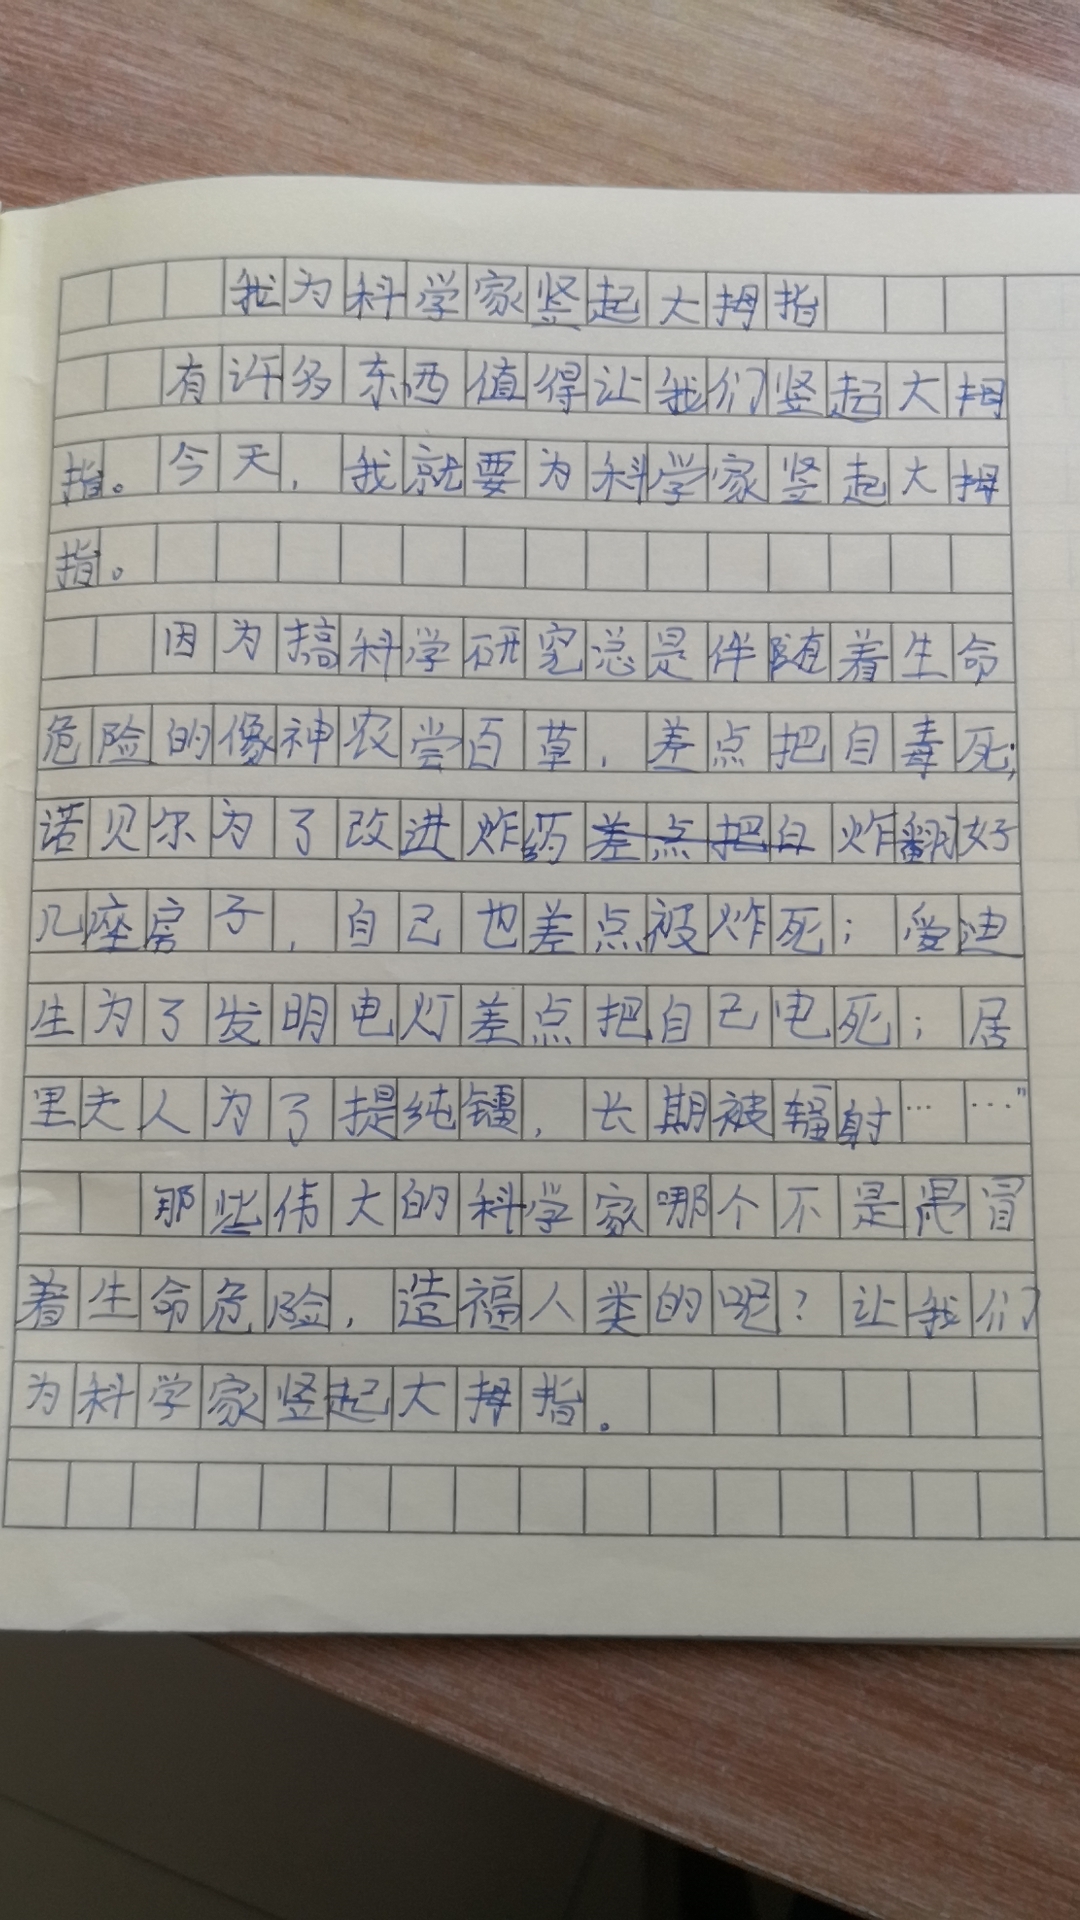 我为科学家竖起大拇指
有许多东西值得让我们竖起大拇
指。今天，我就要为科学家竖起大拇
指。
因为搞科学研究总是伴随着生命
危险的像神农尝百草，差点把自毒死；
诺贝尔为了改进炸药差点把自炸翻好
几座房子，自己也差点被炸死；爱迪
生为了发明电灯差点把自己电死；居
里夫人为了提纯镭，长期被辐射……”
那些伟大的科学家哪个不是冒
着生命危险，造福人类的呢？让我们
为科学家竖起大拇指。